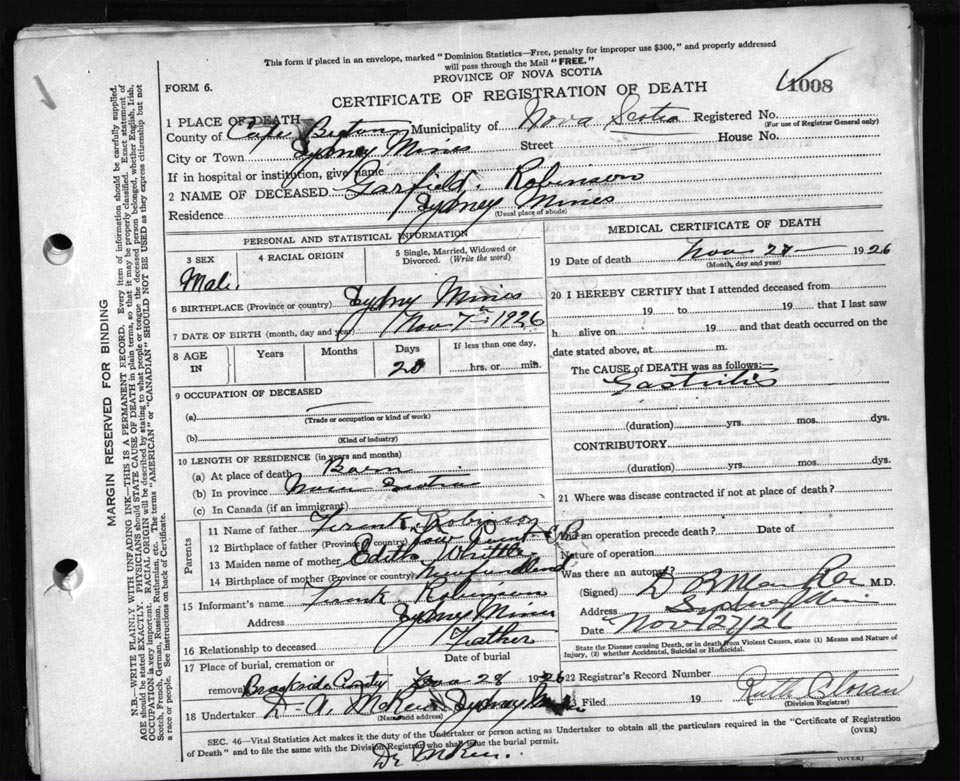 This form if placed in an envelope, marked "Dominion Statistics—Free, penalty for improper use $300," and properly addressed
will pass through the Mail "FREE."
PROVINCE OF NOVA SCOTIA
FORM 6.
CERTIFICATE OF REGISTRATION OF DEATH
1008
1 PLACE OF DEATH
County of Cape Breton Municipality of Nova Scotia Registered No.
(For use of Registrar General only)
City or Town Sydney Mines Street House No.
If in hospital or institution, give name
2 NAME OF DECEASED Garfield. Robinson
Residence Sydney Mines
(Usual place of abode)
PERSONAL AND STATISTICAL INFORMATION
3 SEX
Male.
4 RACIAL ORIGIN
5 Single, Married, Widowed or Divorced. (Write the word)
6 BIRTHPLACE (Province or country) Sydney Mines
7 DATE OF BIRTH (month, day and year) Nov 7th 1926
8 AGE IN
Years Months Days If less than one day,
20 hrs. or min.
9 OCCUPATION OF DECEASED
(a)
(Trade or occupation or kind of work)
(b)
(Kind of industry)
10 LENGTH OF RESIDENCE (in years and months)
(a) At place of death Born
(b) In province Nova Scotia
(c) In Canada (if an immigrant)
Parents
11 Name of father Frank Robinson
12 Birthplace of father (Province or country) Cow
13 Maiden name of mother Edith Whittle
14 Birthplace of mother (Province or country) Newfoundland
15 Informant's name Frank Robinson
Address Sydney Mines
16 Relationship to deceased Father
17 Place of burial, cremation or removal Date of burial
Nov 28 1926
18 Undertaker D. A. McRae Sydney Mines
(Name and address)
MEDICAL CERTIFICATE OF DEATH
19 Date of death Nov 27 1926
(Month, day and year)
20 I HEREBY CERTIFY that I attended deceased from
19 to 19 that I last saw
h alive on 19 and that death occurred on the
date stated above, at m.
The CAUSE of DEATH was as follows:—
Gastritis
(duration) yrs. mos. dys.
CONTRIBUTORY
(duration) yrs. mos. dys.
21 Where was disease contracted if not at place of death?
Did an operation precede death? Date of
Nature of operation
Was there an autopsy?
(Signed) M.D.
Address Sydney Mines
Date Nov 27/26
State the Disease causing Death, or in death from Violent Causes, state (1) Means and Nature of
Injury, (2) whether Accidental, Suicidal or Homicidal.
22 Registrar's Record Number
23 Filed 19 Ruth
(Division Registrar)
SEC. 46—Vital Statistics Act makes it the duty of the Undertaker or person acting as Undertaker to obtain all the particulars required in the "Certificate of Registration
of Death" and to file the same with the Division Registrar who shall issue the burial permit.
(OVER)
Dr McRae.
(OVER)
MARGIN RESERVED FOR BINDING
N.B.—WRITE PLAINLY WITH UNFADING INK—THIS IS A PERMANENT RECORD. Every item of information should be carefully supplied.
AGE should be stated EXACTLY. PHYSICIANS should STATE CAUSE OF DEATH in plain terms, so that it may be properly classified. Exact statement of
OCCUPATION is very important. RACIAL ORIGIN will be described by stating to what people or tongue the deceased person belonged, whether English, Irish,
Scotch, French, German, Russian, Ruthenian, etc. The terms "AMERICAN" or "CANADIAN" SHOULD NOT BE USED as they express citizenship but not
a race or people. See instructions on back of Certificate.